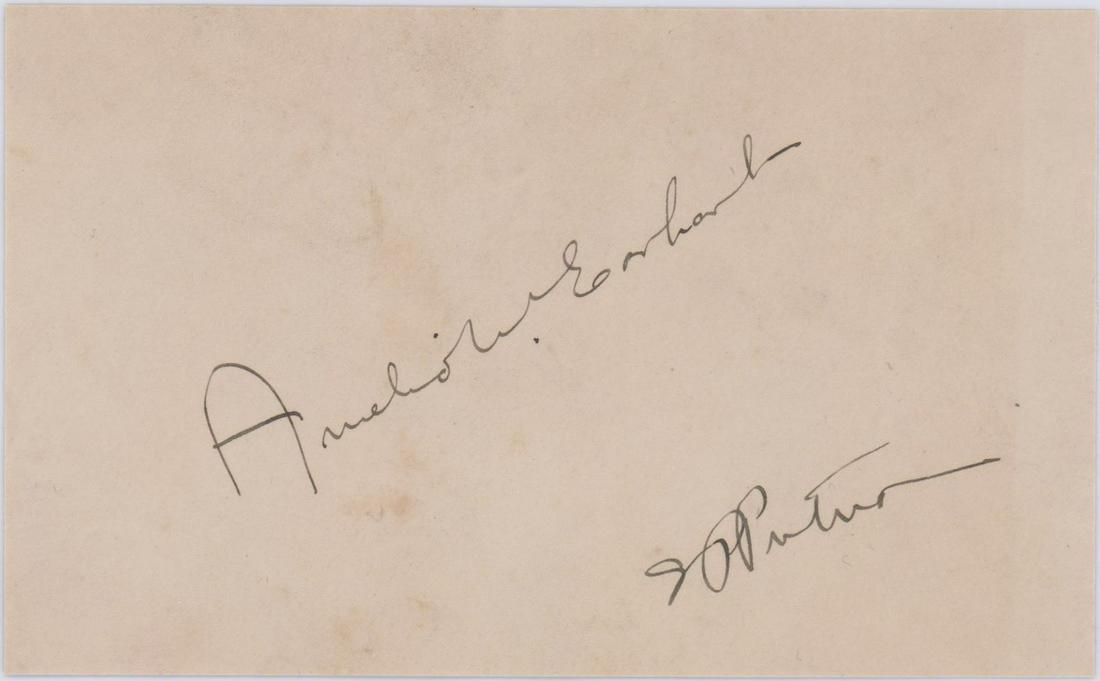 Amelia M. Earhart
GPPutnam